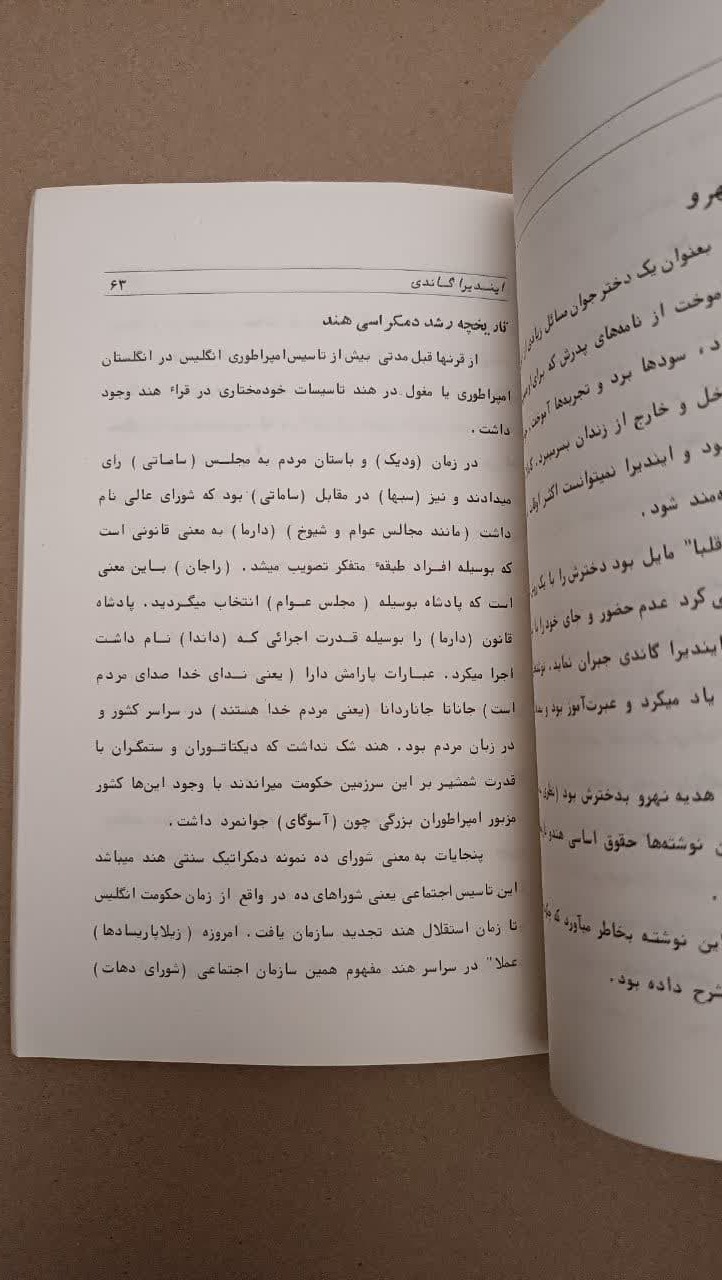 ایندیرا گاندی ۶۳
تاریخچه رشد دمکراسی هند
از قرنها قبل مدتی بیش از تاسیس امپراطوری انگلیس در انگلستان
امپراطوری یا مغول در هند تاسیسات خودمختاری در قراء هند وجود
داشت .
در زمان (ودیک) و باستان مردم به مجلس (ساماتی) رای
میدادند و نیز (سبها) در مقابل (ساماتی) بود که شورای عالی نام
داشت (مانند مجالس عوام و شیوخ) (دارما) به معنی قانونی است
که بوسیله افراد طبقهٔ متفکر تصویب میشد . (راجان) باین معنی
است که پادشاه بوسیله (مجلس عوام) انتخاب میگردید . پادشاه
قانون (دارما) را بوسیله قدرت اجرائی که (داندا) نام داشت
اجرا میکرد . عبارات پارامش دارا (یعنی ندای خدا صدای مردم
است) جاناتا جاناردانا (یعنی مردم خدا هستند) در سراسر کشور و
در زبان مردم بود . هند شک نداشت که دیکتاتوران و ستمگران با
قدرت شمشیر بر این سرزمین حکومت میراندند با وجود این‌ها کشور
مزبور امپراطوران بزرگی چون (آسوگای) جوانمرد داشت .
پنجایات به معنی شورای ده نمونه دمکراتیک سنتی هند میباشد
این تاسیس اجتماعی یعنی شوراهای ده در واقع از زمان حکومت انگلیس
تا زمان استقلال هند تجدید سازمان یافت . امروزه (زیلاپاریسادها)
عملا" در سراسر هند مفهوم همین سازمان اجتماعی (شورای دهات)
بعنوان یک دختر جوان مسائل زیادی
موخت از نامه‌های پدرش که برای
سودها برد و تجربه‌ها آموخت
خل و خارج از زندان بسرمیبرد
ود و ایندیرا نمیتوانست اکثر اوقات
مند شود .
قلبا" مایل بود دخترش را با یک
ی کرد عدم حضور و جای خود را با
ایندیرا گاندی جبران نماید
یاد میکرد و عبرت‌آموز بود و
هدیه نهرو بدخترش بود
ن نوشته‌ها حقوق اساسی هند
.
این نوشته بخاطر میآورد که
شرح داده بود .